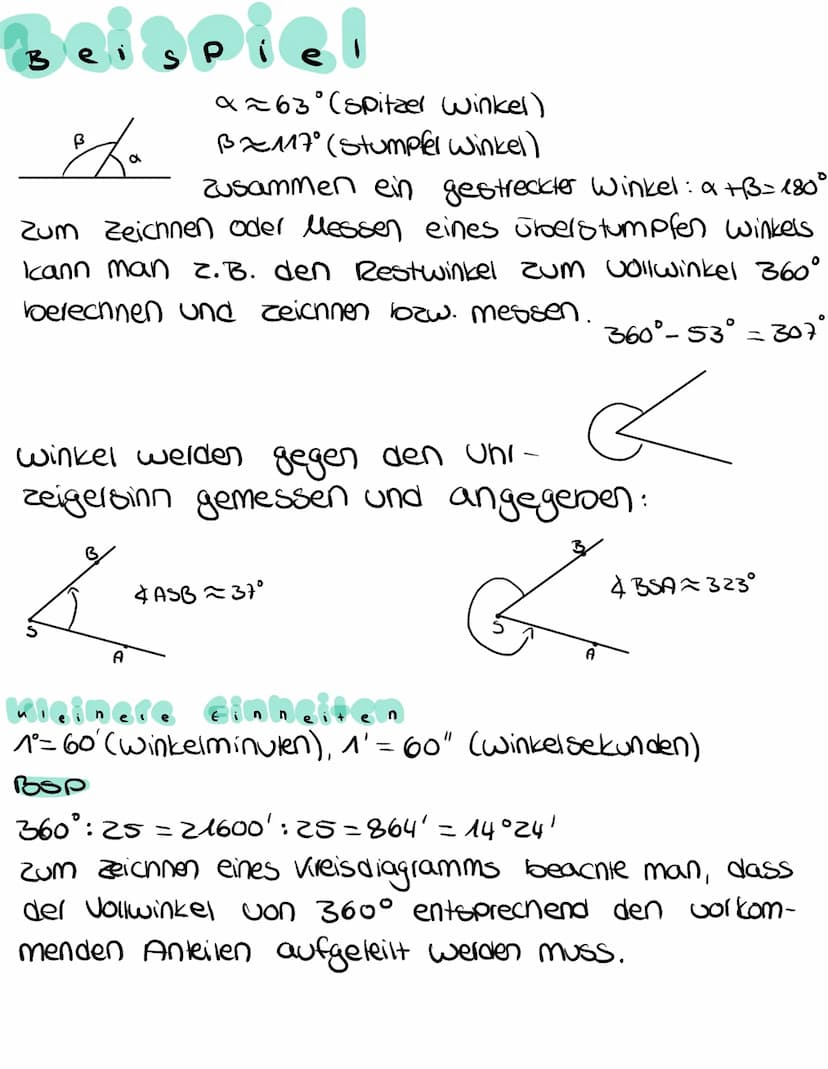 Beispiel
α ≈ 63° (spitzer Winkel)
β ≈ 117° (stumpfer Winkel)
β
α
zusammen ein gestreckter Winkel: α + β = 180°
Zum Zeichnen oder Messen eines überstumpfen Winkels
kann man z.B. den Restwinkel zum Vollwinkel 360°
berechnen und zeichnen bzw. messen.
360° - 53° = 307°
Winkel werden gegen den Uhr-
zeigersinn gemessen und angegeben:
B
∢ ASB ≈ 37°
S
A
B
∢ BSA ≈ 323°
S
A
Kleinere Einheiten
1° = 60' (Winkelminuten), 1' = 60" (Winkelsekunden)
BSP
360° : 25 = 21600' : 25 = 864' = 14°24'
Zum Zeichnen eines Kreisdiagramms beachte man, dass
der Vollwinkel von 360° entsprechend den vorkom-
menden Anteilen aufgeteilt werden muss.